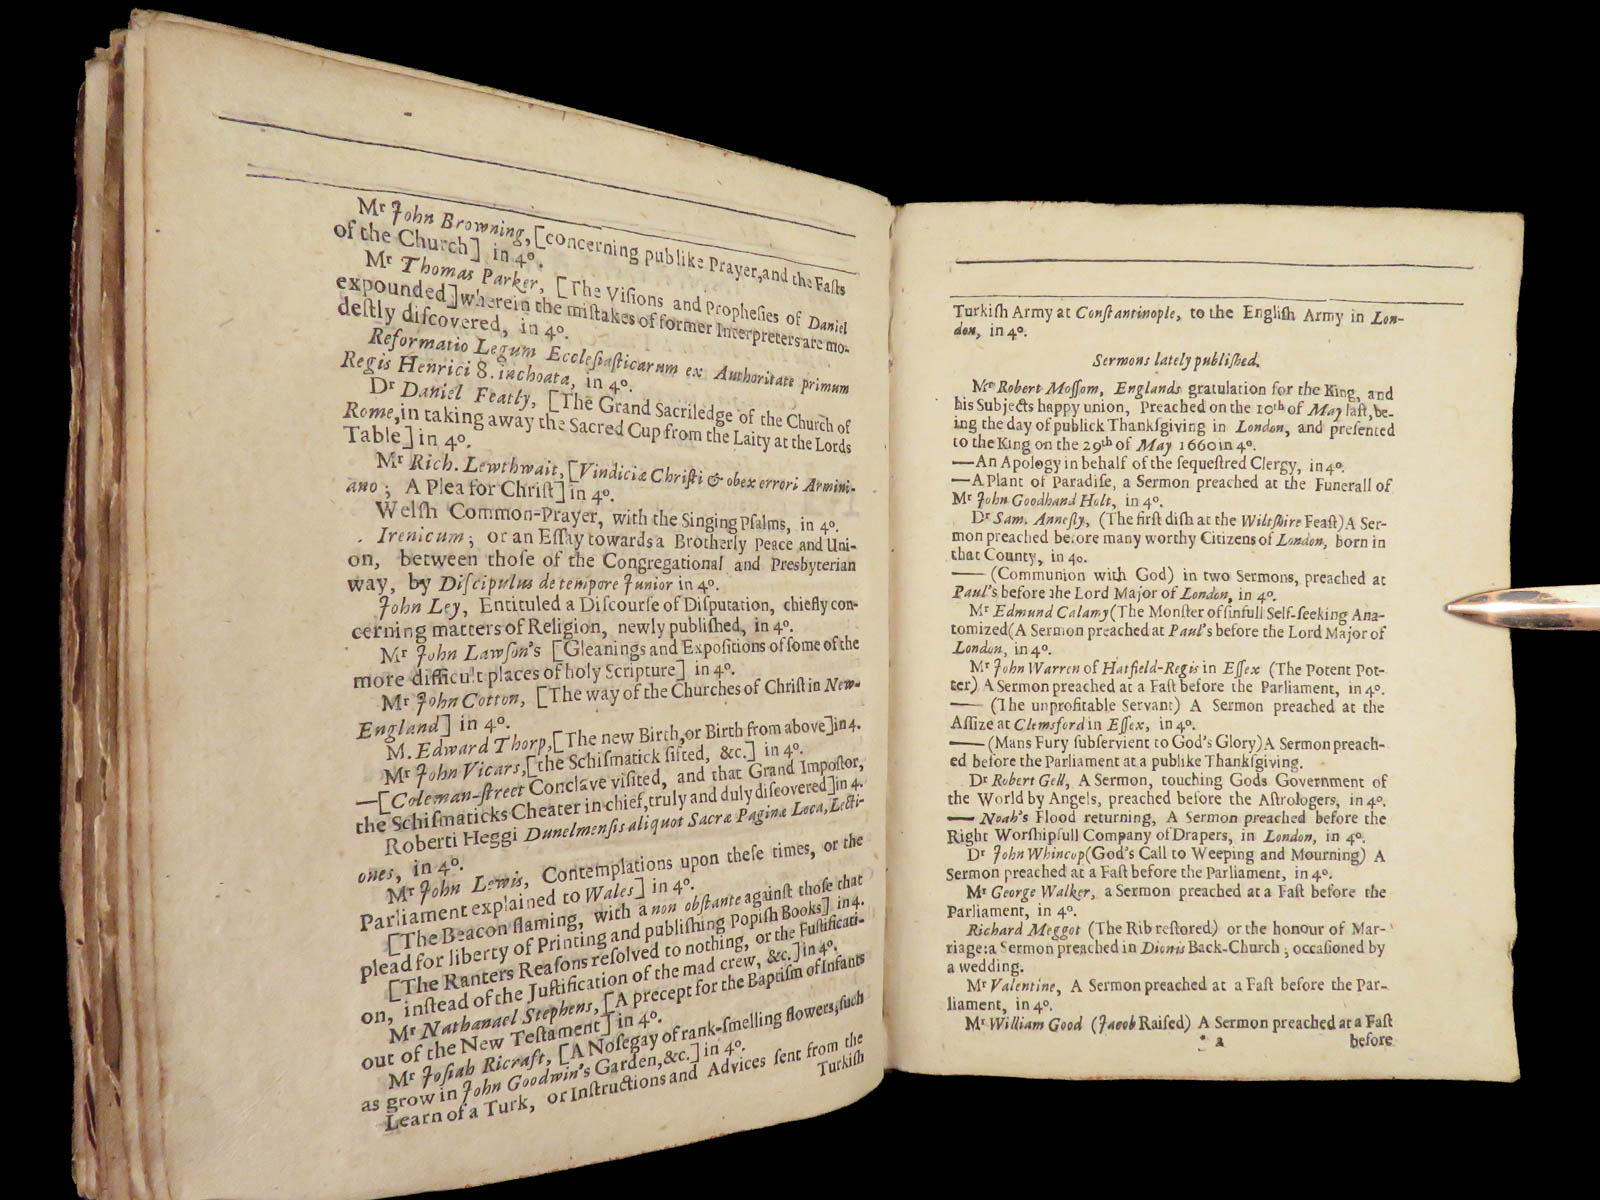 Mr John Browning, [concerning publike Prayer, and the Fasts
of the Church] in 4o.
Mr Thomas Parker, [The Visions and Prophesies of Daniel
expounded] wherein the mistakes of former Interpreters are mo-
destly discovered, in 4o.
Reformatio Legum Ecclesiasticarum ex Authoritate primum
Regis Henrici 8. inchoata, in 4o.
Dr Daniel Featly, [The Grand Sacriledge of the Church of
Rome, in taking away the Sacred Cup from the Laity at the Lords
Table] in 4o.
Mr Rich. Lewthwait, [Vindiciæ Christi & obex errori Armini-
ano; A Plea for Christ] in 4o.
Welsh Common-Prayer, with the Singing Psalms, in 4o.
Irenicum; or an Essay towards a Brotherly Peace and Uni-
on, between those of the Congregational and Presbyterian
way, by Discipulus de tempore Junior in 4o.
John Ley, Entituled a Discourse of Disputation, chiefly con-
cerning matters of Religion, newly published, in 4o.
Mr John Lawson's [Gleanings and Expositions of some of the
more difficult places of holy Scripture] in 4o.
Mr John Cotton, [The way of the Churches of Christ in New-
England] in 4o.
M. Edward Thorp, [The new Birth, or Birth from above] in 4.
Mr John Vicars, [the Schismatick sifted, &c.] in 4o.
—[Coleman-street Conclave visited, and that Grand Impostor,
the Schismaticks Cheater in chief, truly and duly discovered] in 4.
Roberti Heggi Dunelmensis aliquot Sacræ Paginæ Loca, Lecti-
ones, in 4o.
Mr John Lewis, Contemplations upon these times, or the
Parliament explained to Wales] in 4o.
[The Beacon flaming, with a non obstante against those that
plead for liberty of Printing and publishing Popish Books] in 4.
[The Ranters Reasons resolved to nothing, or the Fustificati-
on, instead of the Justification of the mad crew, &c.] in 4o.
Mr Nathanael Stephens, [A precept for the Baptism of Infants
out of the New Testament] in 4o.
Mr Josiah Ricraft, [A Nosegay of rank-smelling flowers, such
as grow in John Goodwin's Garden, &c.] in 4o.
Learn of a Turk, or Instructions and Advices sent from the
Turkish
Turkish Army at Constantinople, to the English Army in Lon-
don, in 4o.
Sermons lately published.
Mr Robert Mossom, Englands gratulation for the King, and
his Subjects happy union, Preached on the 10th of May last, be-
ing the day of publick Thanksgiving in London, and presented
to the King on the 29th of May 1660 in 4o.
—An Apology in behalf of the sequestred Clergy, in 4o.
—A Plant of Paradise, a Sermon preached at the Funerall of
Mr John Goodhand Holt, in 4o.
Dr Sam. Annesly, (The first dish at the Wiltshire Feast) A Ser-
mon preached before many worthy Citizens of London, born in
that County, in 4o.
—— (Communion with God) in two Sermons, preached at
Paul's before the Lord Major of London, in 4o.
Mr Edmund Calamy (The Monster of sinfull Self-seeking Ana-
tomized (A Sermon preached at Paul's before the Lord Major of
London, in 4o.
Mr John Warren of Hatfield-Regis in Essex (The Potent Pot-
ter) A Sermon preached at a Fast before the Parliament, in 4o.
—— (The unprofitable Servant) A Sermon preached at the
Assize at Clemsford in Essex, in 4o.
—— (Mans Fury subservient to God's Glory) A Sermon preach-
ed before the Parliament at a publike Thanksgiving.
Dr Robert Gell, A Sermon, touching Gods Government of
the World by Angels, preached before the Astrologers, in 4o.
—— Noah's Flood returning, A Sermon preached before the
Right Worshipfull Company of Drapers, in London, in 4o.
Dr John Whincop (God's Call to Weeping and Mourning) A
Sermon preached at a Fast before the Parliament, in 4o.
Mr George Walker, a Sermon preached at a Fast before the
Parliament, in 4o.
Richard Meggot (The Rib restored) or the honour of Mar-
riage: a Sermon preached in Dionis Back-Church; occasioned by
a wedding.
Mr Valentine, A Sermon preached at a Fast before the Par-
liament, in 4o.
Mr William Good (Jacob Raised) A Sermon preached at a Fast
a before